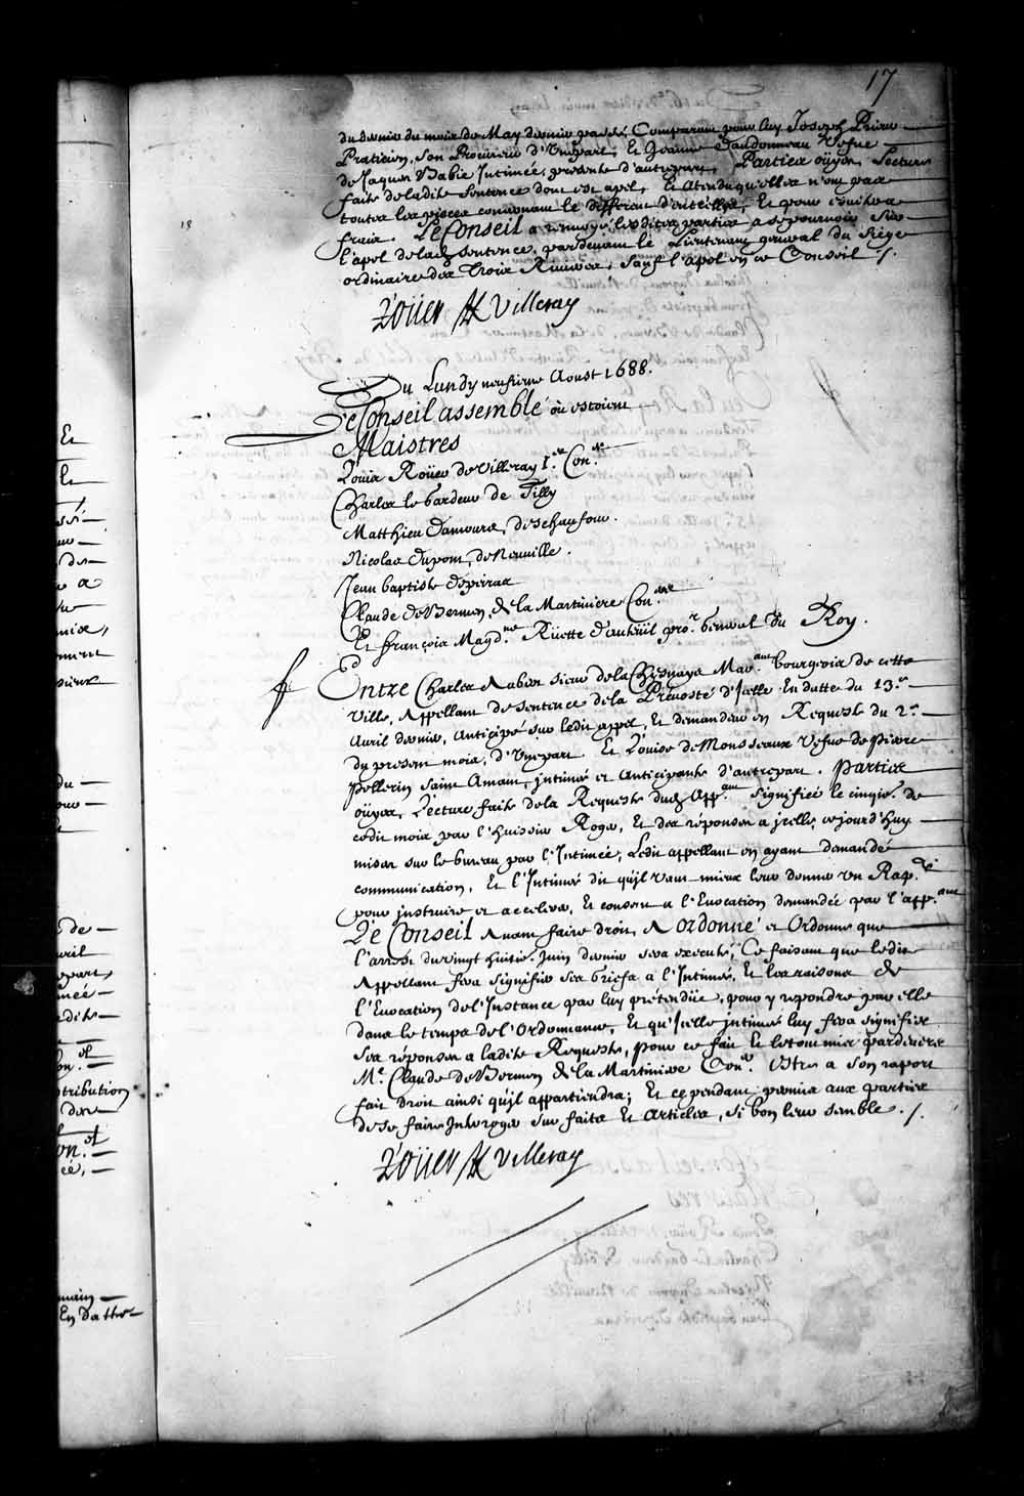 17
du dernier du mois de May dernier passé, Comparant pour luy Joseph Prieur
Praticien, son Procureur d'Unepart, Et Jeanne Dandonneau Vefue
de Jaques Babie Intimée, presente d'autrepart, Parties oüyes, Lecture
faite deladite Sentence dont est apel, Et Atendu qu'elles n'ont pas
toutes les pieces concernant le differend d'entr'elles, Et pour euiter a
fraix. Le Conseil a renuoyé lesdites parties a se pouruoir sur
l'apel de lad. Sentence, pardeuant le Lieutenant general du Siége
ordinaire des Trois Riuieres, sauf l'apel en ce Conseil ./.
Roüer de Villeray
18
Du Lundy neufieme Aoust 1688.
Le Conseil assemblé où estoient
Maistres
Loüis Roüer de Villeray 1.er Con.er
Charles le Gardeur de Tilly
Matthieu Damours, deschaufour.
Nicolas Dupont, de Neuuille.
Jean baptiste depeiras
Claude de Bermen, de la Martiniere Con.ers
Et françois Magd.ne Rüette d'auteüil pro.r General du Roy.
Entre Charles Aubert sieur de la Chesnaye Mar.ant bourgeois de cette
Ville, Appellant de sentence de la Préuosté d'Icelle En datte du 13.e
Auril dernier, anticipé sur ledit appel, Et demandeur en Requeste du 2.e
du present mois, d'Unepart Et Loüise de Mousseaux Vefue de pierre
pellerin Saint Amant, jntimée et Anticipante d'autrepart. Parties
oüyes, Lecture faite dela Requeste dud. App.ant signifiée le cinqie. de
cedit mois par l'huissier Roger, Et des réponses a jcelle, cejourd'huy
mises sur le bureau par l'Intimée, Ledit appellant en ayant demandé
communication, Et l'Intimée dit qu'jl vaut mieux leur donner un Rap.r
pour jnstruire et accelerer, Et consent a l'Euocation demandée par l'app.ant
Le Conseil Auant faire droit, A ordonné et Ordonne que
l'arrest du vingt huitie. Juin dernier sera executé, Ce faisant que ledit
Appellant fera signifier ses briefs a l'Intimée, Et les raisons de
l'Euocation de l'Instance par luy prétendüe, pour y repondre par elle
dans le temps de l'Ordonnance, Et qu'Icelle jntimée luy fera signifier
ses réponses a ladite Requeste, pour ce fait Et le tout mis pardeuers
M.e Claude de Bermen de la Martiniere Con.er Estre a son raport
fait droit ainsi qu'jl appartiendra; Et cependant permis aux parties
de se faire Interroger sur faits Et Articles, si bon leur semble. ./.
Roüer de Villeray
Et
de
a
ment
de
auril
tribution
main
En datte